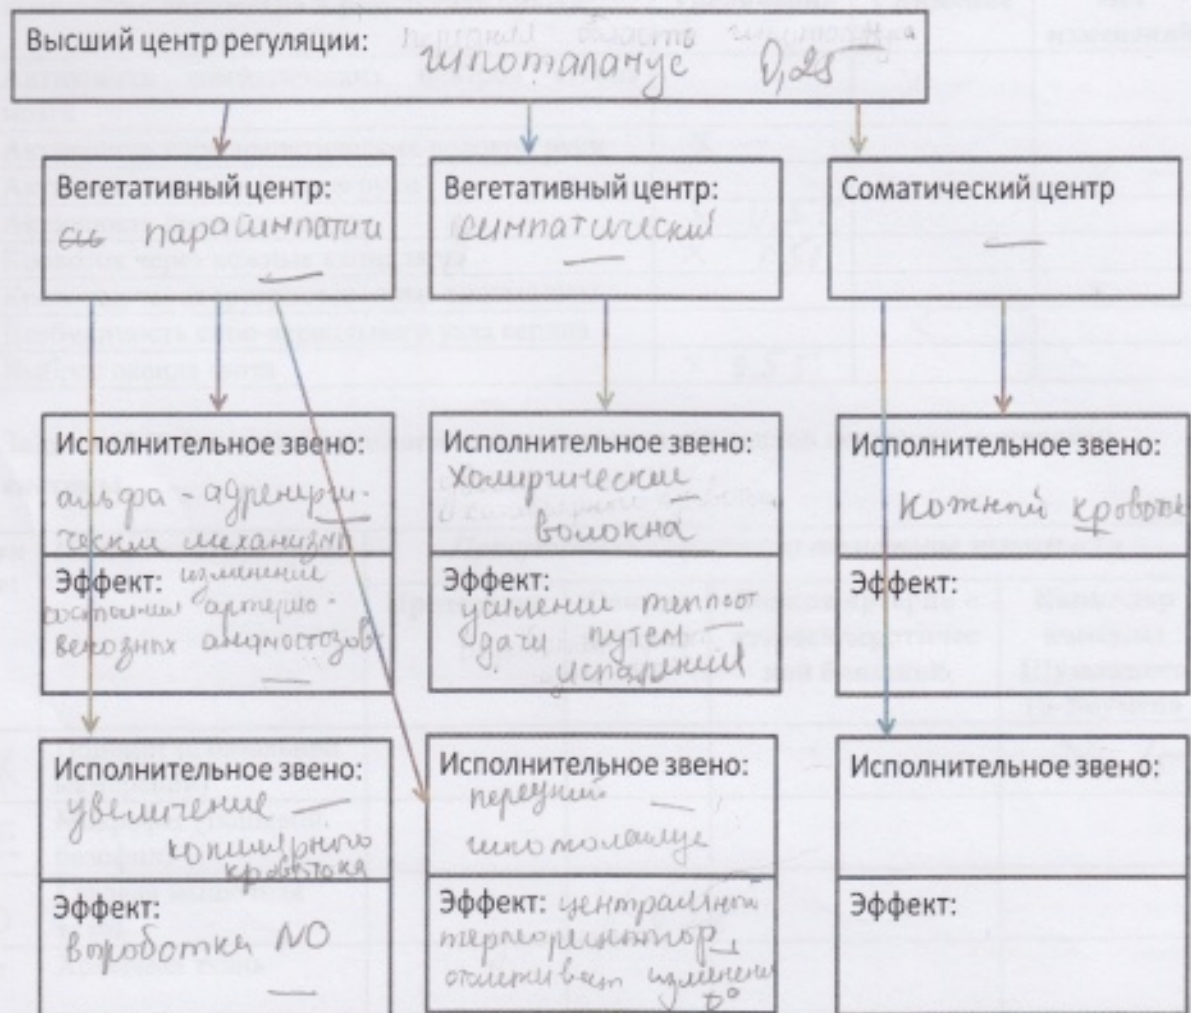 Высший центр регуляции:
гипоталамус 0,25
Вегетативный центр:
парасимпатич
Вегетативный центр:
симпатический
Соматический центр
Исполнительное звено:
альфа - адренерги-
ческие механизмы
Эффект: изменение
состояния артерио-
венозных анастомозов
Исполнительное звено:
Холиргические
волокна
Эффект:
усиление теплоот
дачи путем
испарений
Исполнительное звено:
Кожный кровоток
Эффект:
Исполнительное звено:
увеличение
капилярного
кровотока
Эффект:
выработка NO
Исполнительное звено:
передний
гипоталамус
Эффект: центральный
терморецептор
отслеживает изменения
t°
Исполнительное звено:
Эффект: